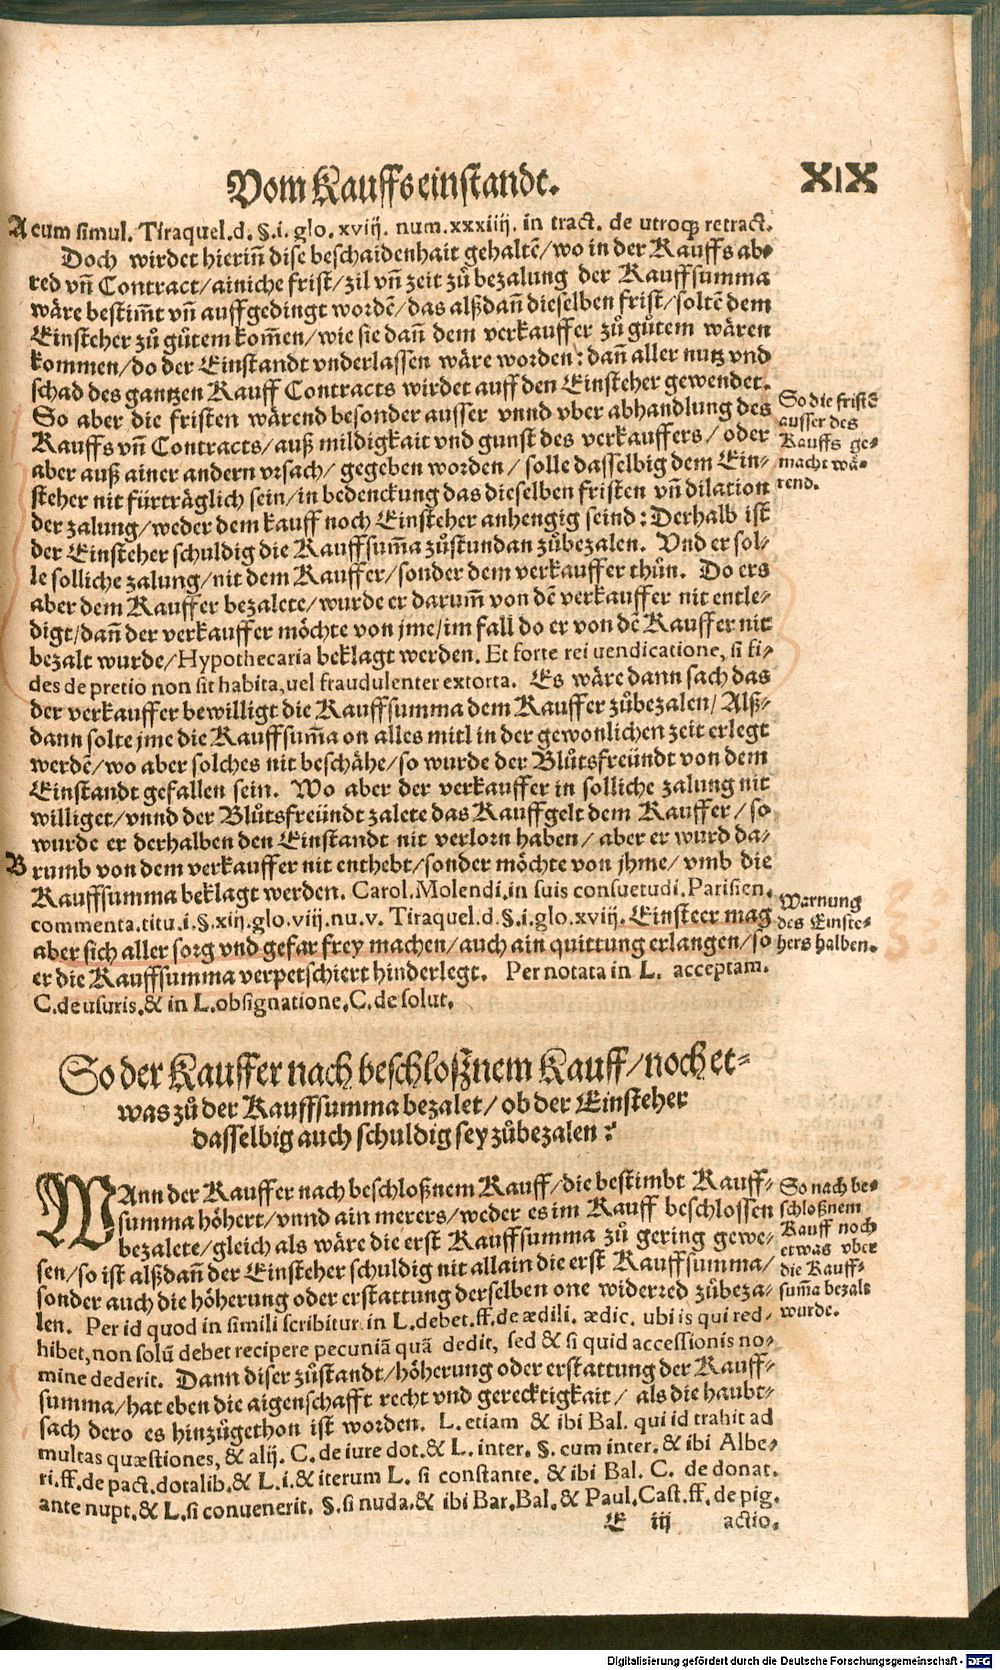 Vom Kauffs einstandt. XIX
A cum simul. Tiraquel.d. §.i. glo. xviij. num.xxxiiij. in tract. de utroq; retract.
Doch wirdet hieriñ dise beschaidenhait gehaltẽ/wo in der Kauffs ab⸗
red vñ Contract/ainiche frist/zil vñ zeit zů bezalung der Kauffsumma
wäre bestim̃t vñ auffgedingt wordẽ/das alßdañ dieselben frist/soltẽ dem
Einsteher zů gůtem kom̃en/wie sie dañ dem verkauffer zů gůtem wären
kommen/do der Einstandt vnderlassen wäre worden: dañ aller nutz vnd
schad des gantzen Kauff Contracts wirdet auff den Einsteher gewendet.
So aber die fristen wärend besonder ausser vnnd vber abhandlung des
Kauffs vñ Contracts/auß mildigkait vnd gunst des verkauffers/oder
aber auß ainer andern vrsach/gegeben worden/solle dasselbig dem Ein⸗
steher nit fürträglich sein/in bedenckung das dieselben fristen vñ dilation
der zalung/weder dem kauff noch Einsteher anhengig seind: Derhalb ist
der Einsteher schuldig die Kauffsum̃a zůstundan zůbezalen. Vnd er sol⸗
le solliche zalung/nit dem Kauffer/sonder dem verkauffer thůn. Do ers
aber dem Kauffer bezalete/wurde er darum̃ von dẽ verkauffer nit entle⸗
digt/dañ der verkauffer möchte von jme/im fall do er von dẽ Kauffer nit
bezalt wurde/Hypothecaria beklagt werden. Et forte rei uendicatione, si fi⸗
des de pretio non sit habita, uel fraudulenter extorta. Es wäre dann sach das
der verkauffer bewilligt die Kauffsumma dem Kauffer zůbezalen/Alß⸗
dann solte jme die Kauffsum̃a on alles mitl in der gewonlichen zeit erlegt
werdẽ/wo aber solches nit beschähe/so wurde der Blůtsfreündt von dem
Einstandt gefallen sein. Wo aber der verkauffer in solliche zalung nit
williget/vnnd der Blůtsfreündt zalete das Kauffgelt dem Kauffer/so
wurde er derhalben den Einstandt nit verlorn haben/aber er wurd da⸗
B rumb von dem verkauffer nit enthebt/sonder möchte von jhme/vmb die
Kauffsumma beklagt werden. Carol. Molendi. in suis consuetudi. Parisien.
commenta.titu.i.§.xiij.glo.viij.nu.v. Tiraquel.d.§.i.glo.xviij. Einsteer mag
aber sich aller sorg vnd gefar frey machen/auch ain quittung erlangen/so
er die Kauffsumma verpetschiert hinderlegt. Per notata in L. acceptam.
C.de usuris.& in L.obsignatione.C.de solut.
So die fristẽ
ausser des
Kauffs ge⸗
macht wä⸗
rend.
Warnung
des Einste⸗
hers halben.
So der Kauffer nach beschloßnem Kauff/noch et⸗
was zů der Kauffsumma bezalet/ob der Einsteher
dasselbig auch schuldig sey zůbezalen:
WAnn der Kauffer nach beschloßnem Kauff/die bestimbt Kauff⸗
summa höhert/vnnd ain merers/weder es im Kauff beschlossen
bezalete/gleich als wäre die erst Kauffsumma zů gering gewe⸗
sen/so ist alßdañ der Einsteher schuldig nit allain die erst Kauffsumma/
sonder auch die höherung oder erstattung derselben one widerred zůbeza⸗
len. Per id quod in simili scribitur in L.debet.ff.de ædili. ædic. ubi is qui red⸗
hibet, non solũ debet recipere pecuniã quã dedit, sed & si quid accessionis no⸗
mine dederit. Dann diser zůstandt/höherung oder erstattung der Kauff⸗
summa/hat eben die aigenschafft recht vnd gerecktigkait/als die haubt⸗
sach dero es hinzůgethon ist worden. L. etiam & ibi Bal. qui id trahit ad
multas quæstiones, & alij. C. de iure dot.& L. inter. §. cum inter.& ibi Albe⸗
ri.ff.de pact.dotalib.& L.i.& iterum L. si constante. & ibi Bal. C. de donat.
ante nupt.& L.si conuenerit. §.si nuda.& ibi Bar.Bal.& Paul.Cast.ff.de pig.
So nach be⸗
schloßnem
Kauff noch
etwas vber
die Kauff⸗
sum̃a bezalt
wurde.
E iij actio.
Digitalisierung gefördert durch die Deutsche Forschungsgemeinschaft - DFG